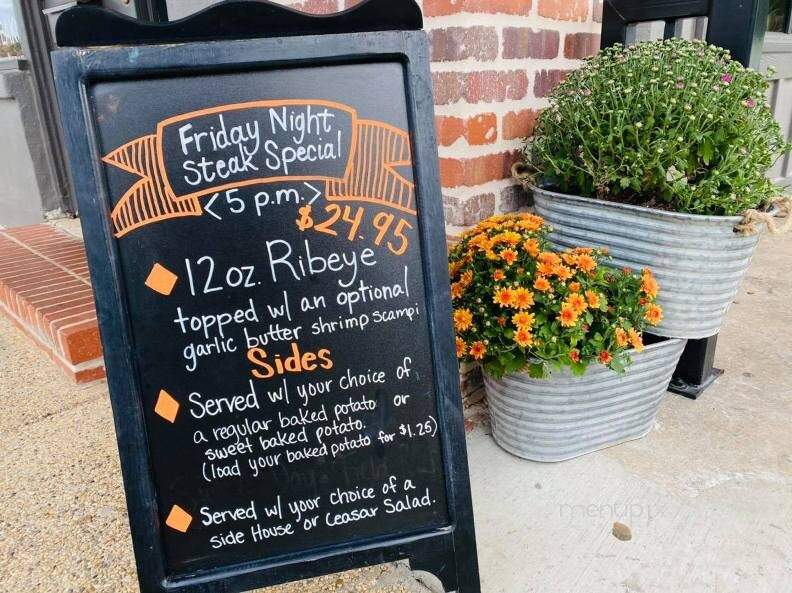 Friday Night
Steak Special
<5 p.m.>
$24.95
12oz. Ribeye
topped w/ an optional
garlic butter shrimp scampi
Sides
Served w/ your choice of
a regular baked potato or
sweet baked potato.
(load your baked potato for $1.25)
Served w/ your choice of a
side House or Ceasar Salad.